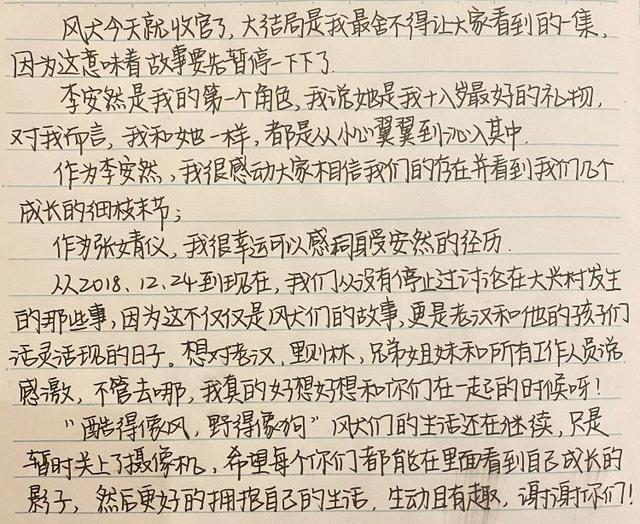 风犬今天就收官了,大结局是我最舍不得让大家看到的一集,
因为这意味着故事要先暂停一下下了.
李安然是我的第一个角色,我说她是我十八岁最好的礼物,
对我而言,我和她一样,都是从小心翼翼到沁入其中.
作为李安然,我很感动大家相信我们的存在并看到我们几个
成长的细枝末节;
作为张婧仪,我很幸运可以感同身受安然的经历.
从2018.12.24到现在,我们从没有停止过讨论在大兴村发生
的那些事,因为这不仅仅是风犬们的故事,更是老汉和他的孩子们
活灵活现的日子。想对老汉,里则林,兄弟姐妹和所有工作人员说
感激,不管去哪,我真的好想好想和你们在一起的时候呀!
"酷得像风,野得像狗"风犬们的生活还在继续,只是
暂时关上了摄像机,希望每个你们都能在里面看到自己成长的
影子,然后更好的拥抱自己的生活,生动且有趣,谢谢你们!